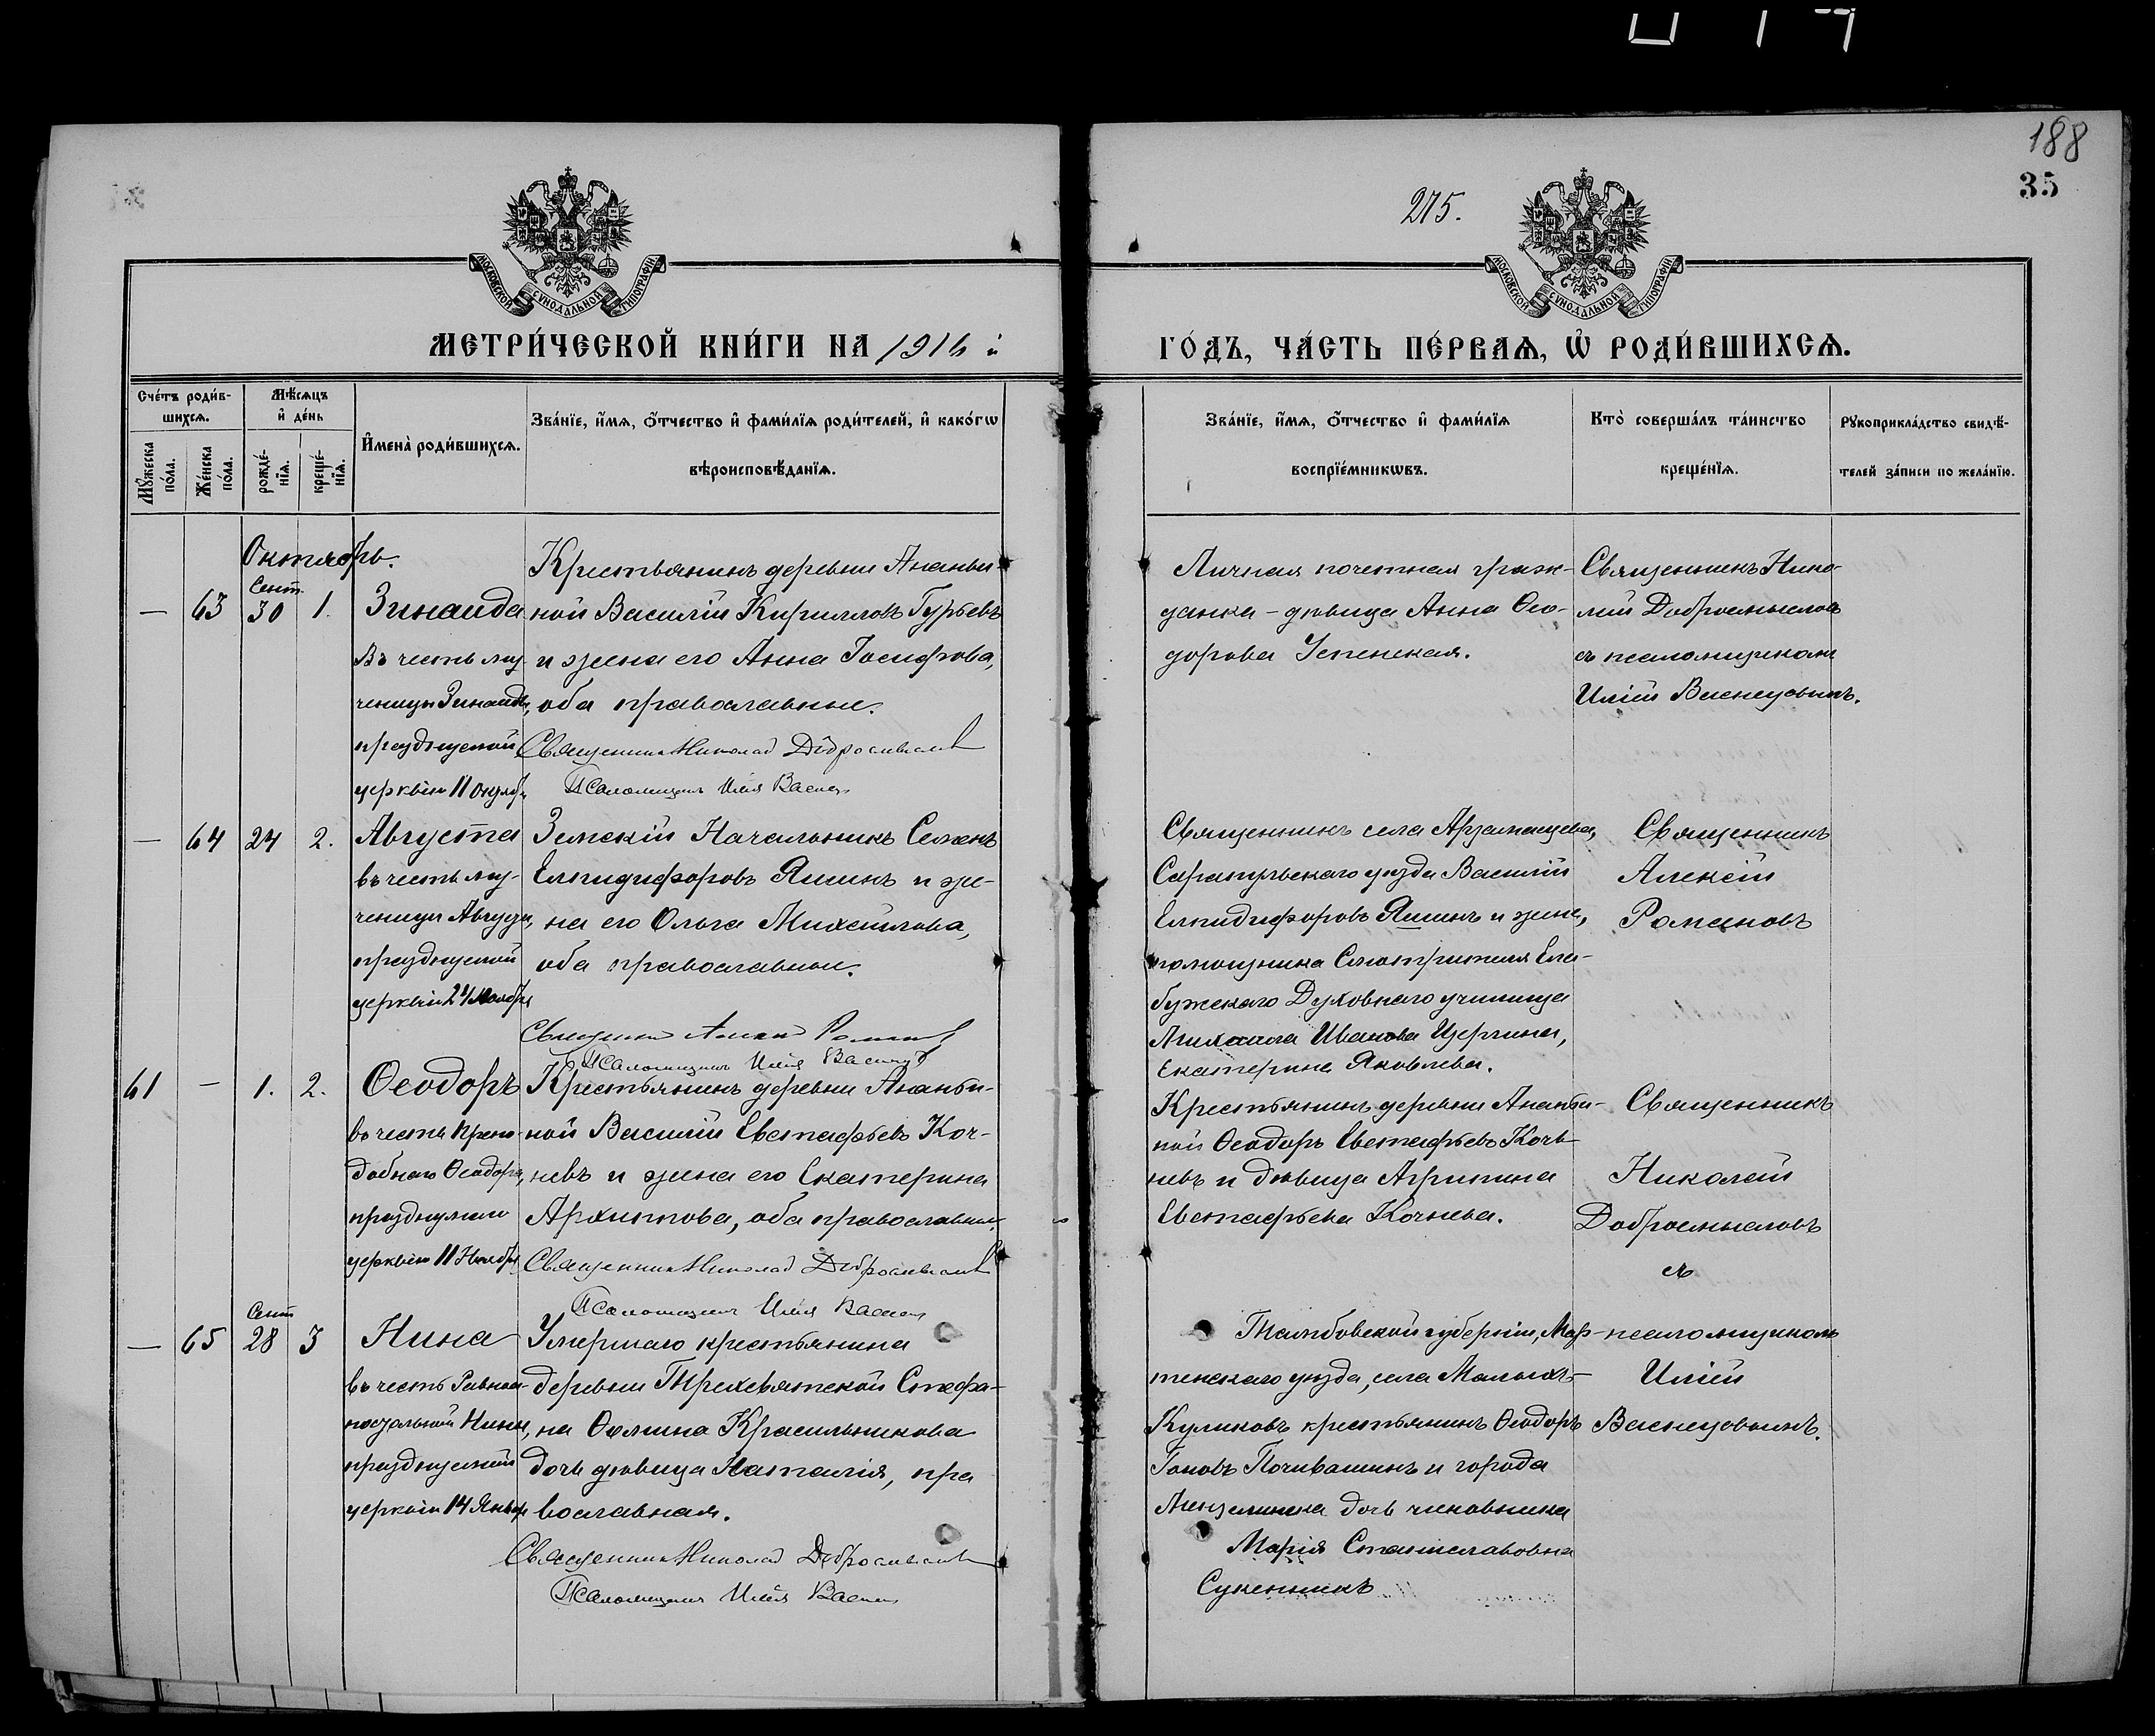 188
35
275.
МОСКОВСКОЙ СѴНОДАЛЬНОЙ ТИПОГРАФІИ
МОСКОВСКОЙ СѴНОДАЛЬНОЙ ТИПОГРАФІИ
МЕТРИ́ЧЕСКОЙ КНИ́ГИ НА 1916 й
ГО́ДЪ, ЧА́СТЬ ПЕ́РВАѦ, Ѡ҆ РОДИ́ВШИХСѦ.
Сче́тъ роди́в-
шихсѧ.
Мꙋ́жеска
по́ла.
Же́нска
по́ла.
Мѣ́сѧцъ
и҆ де́нь
рожде́-
нїѧ.
креще́-
нїѧ.
И҆мена̀ роди́вшихсѧ.
Зва́нїе, и҆́мѧ, ѻ҆́тчество и҆ фами́лїѧ роди́телей, и҆ како́гѡ
вѣроисповѣ́данїѧ.
Зва́нїе, и҆́мѧ, ѻ҆́тчество и҆ фами́лїѧ
воспрїе́мникѡвъ.
Кто̀ соверша́лъ та́инство
креще́нїѧ.
Рꙋкоприкла́дство свидѣ́-
телей за́писи по жела́нїю.
Октябрь.
— 63 Сент. 30 1.
Зинаида
въ честь му-
ченицы Зинаиды,
празднуемой
церквію 11 Октября
Крестьянинъ деревни Ананьи-
ной Василій Кирилловъ Гурьевъ
и жена его Анна Іосифова,
оба православные.
Священникъ Николай Добромысловъ
Псаломщикъ Илія Васнецовъ
Личная почетная граж-
данка - дѣвица Анна Ѳео-
дорова Успенская.
Священникъ Нико-
лай Добромысловъ
съ псаломщикомъ
Иліей Васнецовымъ.
— 64 24 2.
Августа
въ честь му-
ченицы Августы,
празднуемой
церквію 24 Ноября
Земскій Начальникъ Семенъ
Елпидифоровъ Яшинъ и же-
на его Ольга Михайлова,
оба православные.
Священникъ Алексій Романовъ
Псаломщикъ Илія Васнецовъ
Священникъ села Арзамасцева,
Сарапульскаго уѣзда Василій
Елпидифоровъ Яшинъ и жена,
помощника Смотрителя Ела-
бужскаго Духовнаго училища
Михаила Иванова Церлина,
Екатерина Яковлева.
Священникъ
Алексій
Романовъ
61 — 1. 2.
Ѳеодоръ
въ честь Препо-
добнаго Ѳеодора,
празднуемаго
церквію 11 Ноября
Крестьянинъ деревни Ананьи-
ной Василій Евстафьевъ Коч-
невъ и жена его Екатерина
Архипова, оба православные.
Священникъ Николай Добромысловъ
Псаломщикъ Илія Васнецовъ
Крестьянинъ деревни Ананьи-
ной Ѳеодоръ Евстафьевъ Коч-
невъ и дѣвица Агрипина
Евстафьева Кочнева.
Священникъ
Николай
Добромысловъ
съ
— 65 Сент 28 3
Нина
въ честь Равноа-
постольной Нины,
празднуемой
церквію 14 Января
Умершаго крестьянина
деревни Трехсвятской Стефа-
на Ѳомина Красильникова
дочь дѣвица Наталія, пра
вославная.
Священникъ Николай Добромысловъ
Псаломщикъ Илія Васнецовъ
Тамбовской губерніи, Мар-
шанскаго уѣзда, села Малыхъ-
Куликовъ крестьянинъ Ѳеодоръ
Почивалинъ и города
Мензелинска дочь чиновника
Марія Станиславовна
Сукенникъ
псаломщикомъ
Иліей
Васнецовымъ.